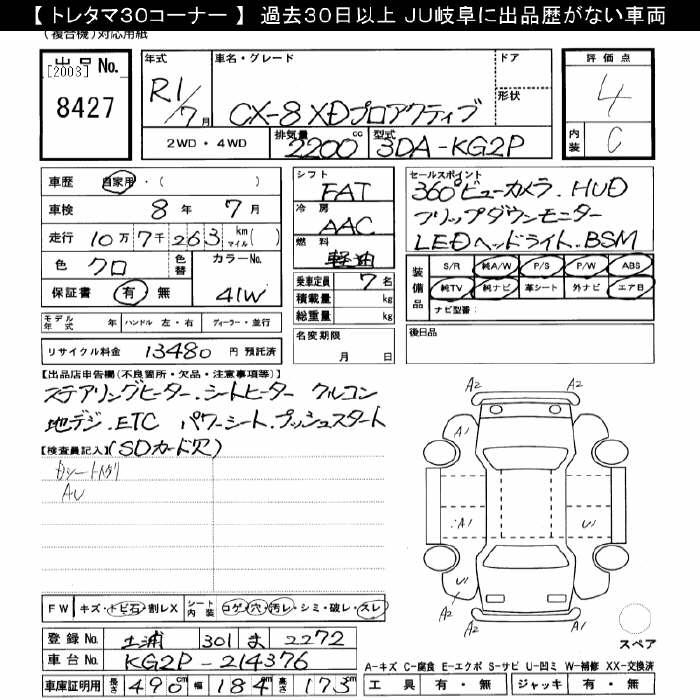 【 トレタマ30コーナー 】 過去30日以上 JU岐阜に出品歴がない車両
(複合機)対応用紙
出品 No.
[2003]
8427
年式
R1/7月
車名・グレード
CX-8 XDプロアクティブ
ドア
形状
評価点
4
内装
C
2WD・4WD
排気量
2200cc
型式
3DA-KG2P
車歴 自家用・( )
車検 8年 7月
走行 10万7千263 km マイル( )
色 クロ
色替
カラーNo.
41W
保証書 有・無
シフト
FAT
冷房
AAC
燃料
軽油
乗車定員 7名
積載量 kg
総重量 kg
名変期限
月 日
セールスポイント
360°ビューカメラ.HUD
フリップダウンモニター
LEDヘッドライト.BSM
装備品
S/R 純A/W P/S P/W ABS
純TV 純ナビ 革シート 外ナビ エアB
ナビ型番:
モデル年式 年 ハンドル 左・右 ディーラー・並行
後日品
リサイクル料金 13480 円 預託済
【出品店申告欄(不良箇所・欠品・注意事項等)】
ステアリングヒーター.シートヒーター クルコン
地デジ.ETC パワーシート.プッシュスタート
【検査員記入】(SDカード欠)
AU
A2
A2
A1
A1
U1
A2
U1
A2
スペア
FW キズ・トビ石・割レX シート内装 コゲ・穴・汚レ・シミ・破レ・スレ
登録 No. 土浦 301 ま 2272
車台 No. KG2P-214376
車庫証明用 長さ 490cm 幅 184cm 高さ 173cm
A-キズ C-腐食 E-エクボ S-サビ U-凹ミ W-補修 XX-交換済
工具 有・無 ジャッキ 有・無